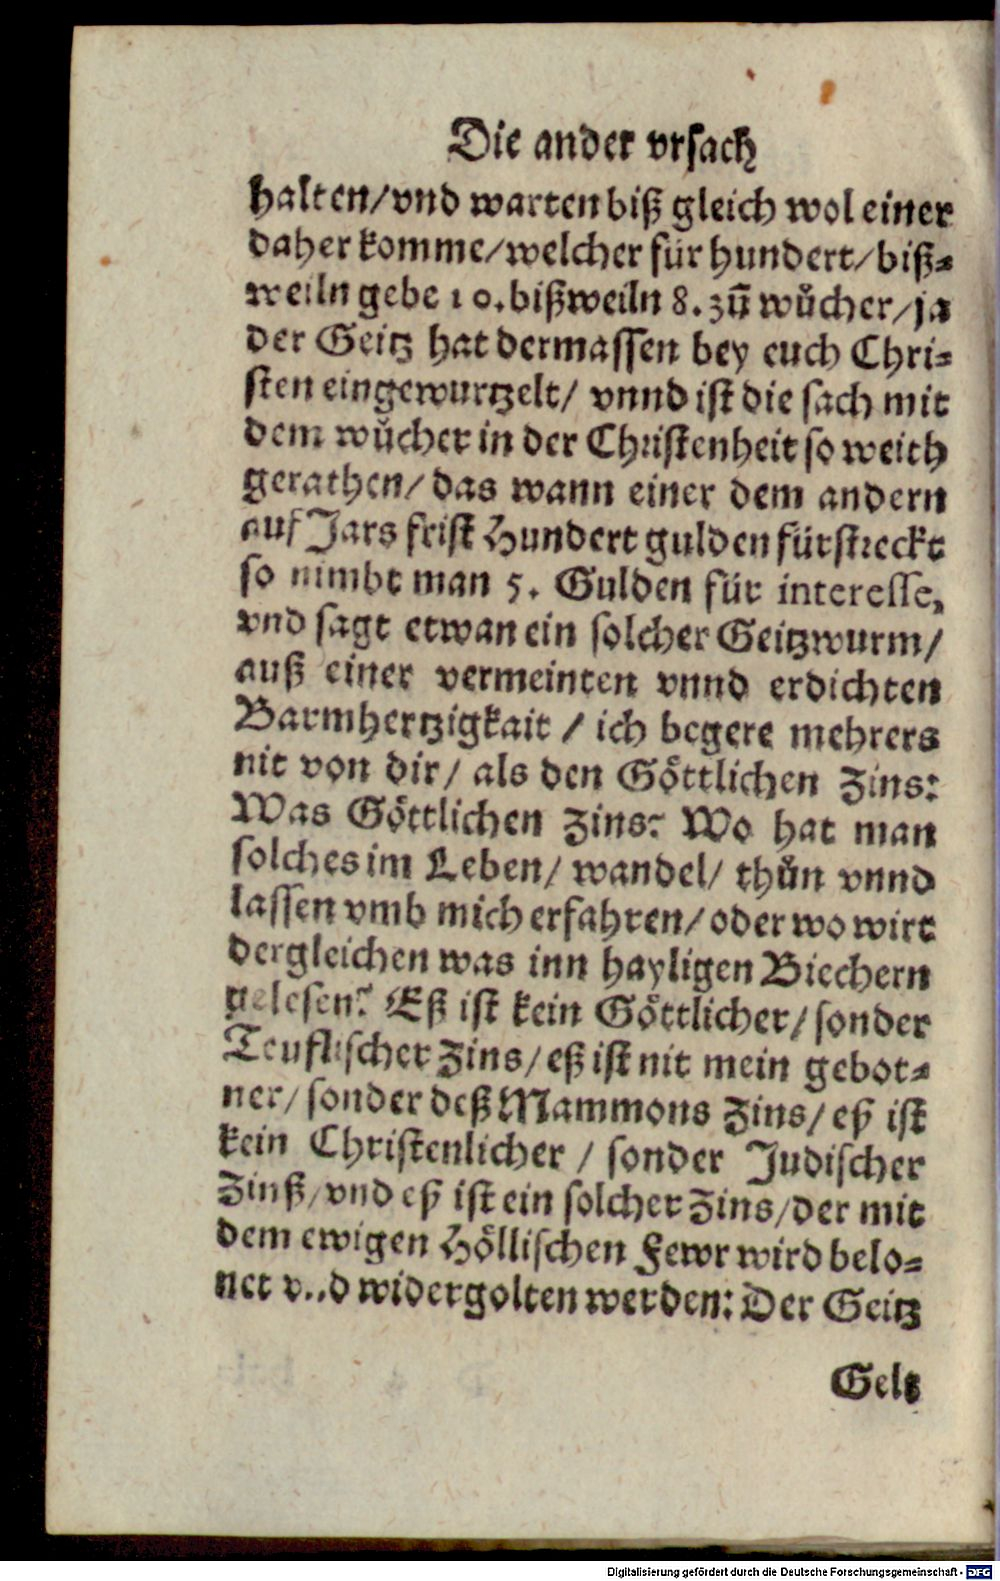 Die ander vrsach
halten/vnd warten biß gleich wol einer
daher komme/welcher für hundert/biß⸗
weiln gebe 10. bißweiln 8. zů wůcher/ja
der Geitz hat dermassen bey euch Chri⸗
sten eingewurtzelt/ vnnd ist die sach mit
dem wůcher in der Christenheit so weith
gerathen/ das wann einer dem andern
auf Jars frist Hundert gulden fürstreckt
so nimbt man 5. Gulden für interesse,
vnd sagt etwan ein solcher Geitzwurm/
auß einer vermeinten vnnd erdichten
Barmhertzigkait / ich begere mehrers
nit von dir/ als den Göttlichen Zins:
Was Göttlichen Zins? Wo hat man
solches im Leben/ wandel/ thůn vnnd
lassen vmb mich erfahren/ oder wo wirt
dergleichen was inn hayligen Biechern
gelesen? Eß ist kein Göttlicher/ sonder
Teuflischer Zins/ eß ist nit mein gebot⸗
ner/ sonder deß Mammons Zins/ eß ist
kein Christenlicher / sonder Judischer
Zinß/vnd eß ist ein solcher Zins/der mit
dem ewigen Höllischen Fewr wird belo⸗
net vnd widergolten werden: Der Geitz
Geltz
Digitalisierung gefördert durch die Deutsche Forschungsgemeinschaft - DFG